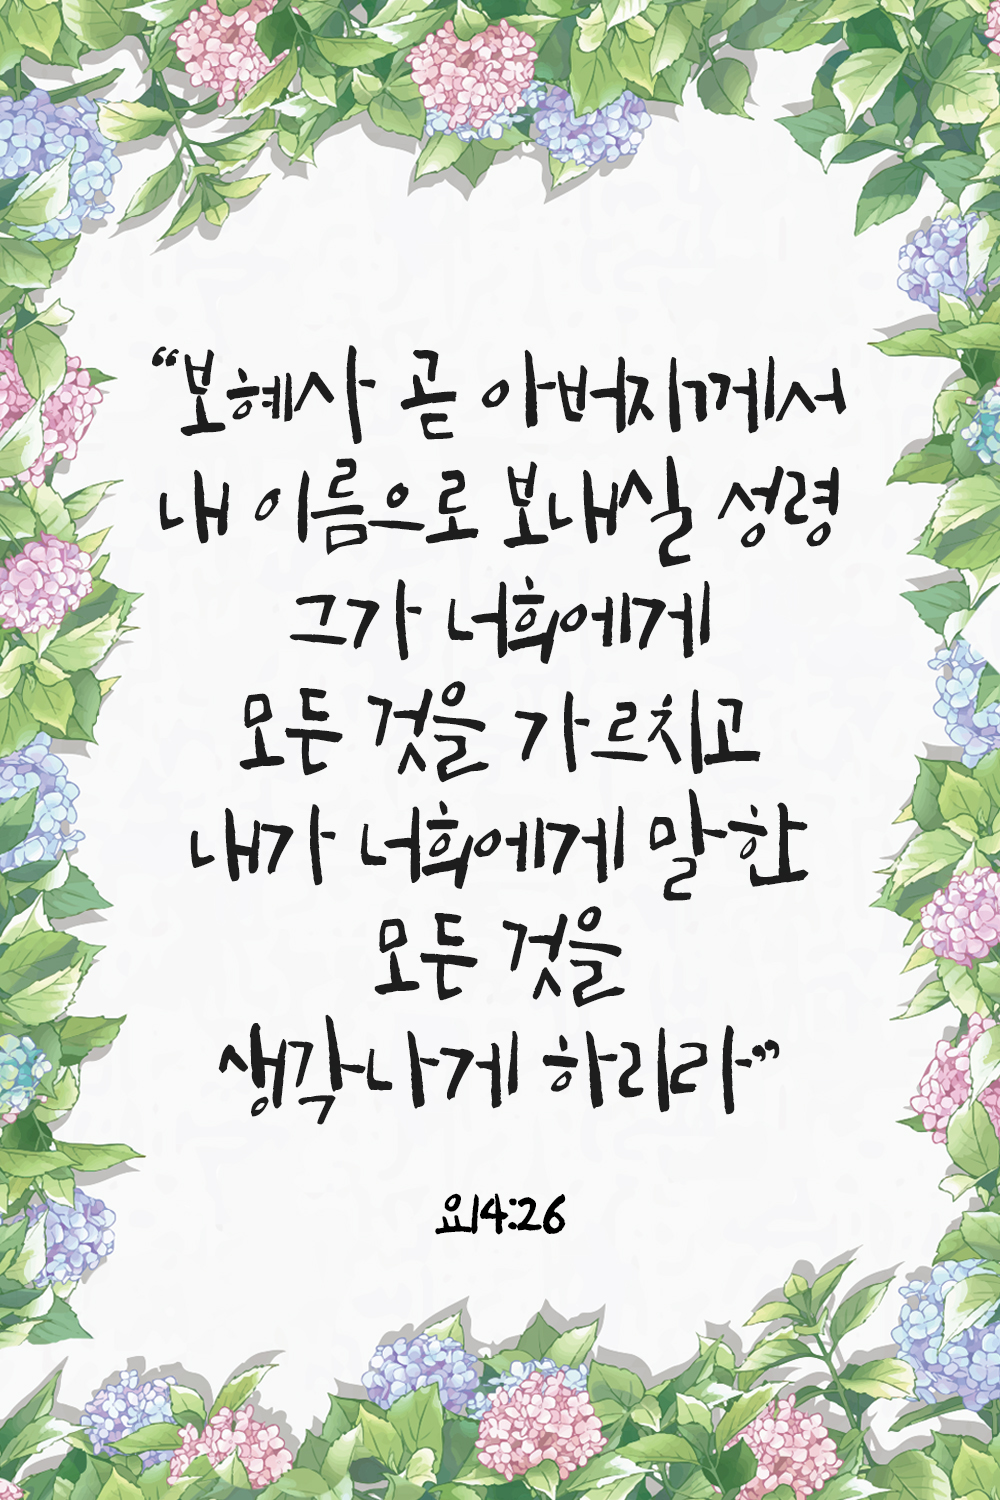 “보혜사 곧 아버지께서
내 이름으로 보내실 성령
그가 너희에게
모든 것을 가르치고
내가 너희에게 말한
모든 것을
생각나게 하리라”
요14:26